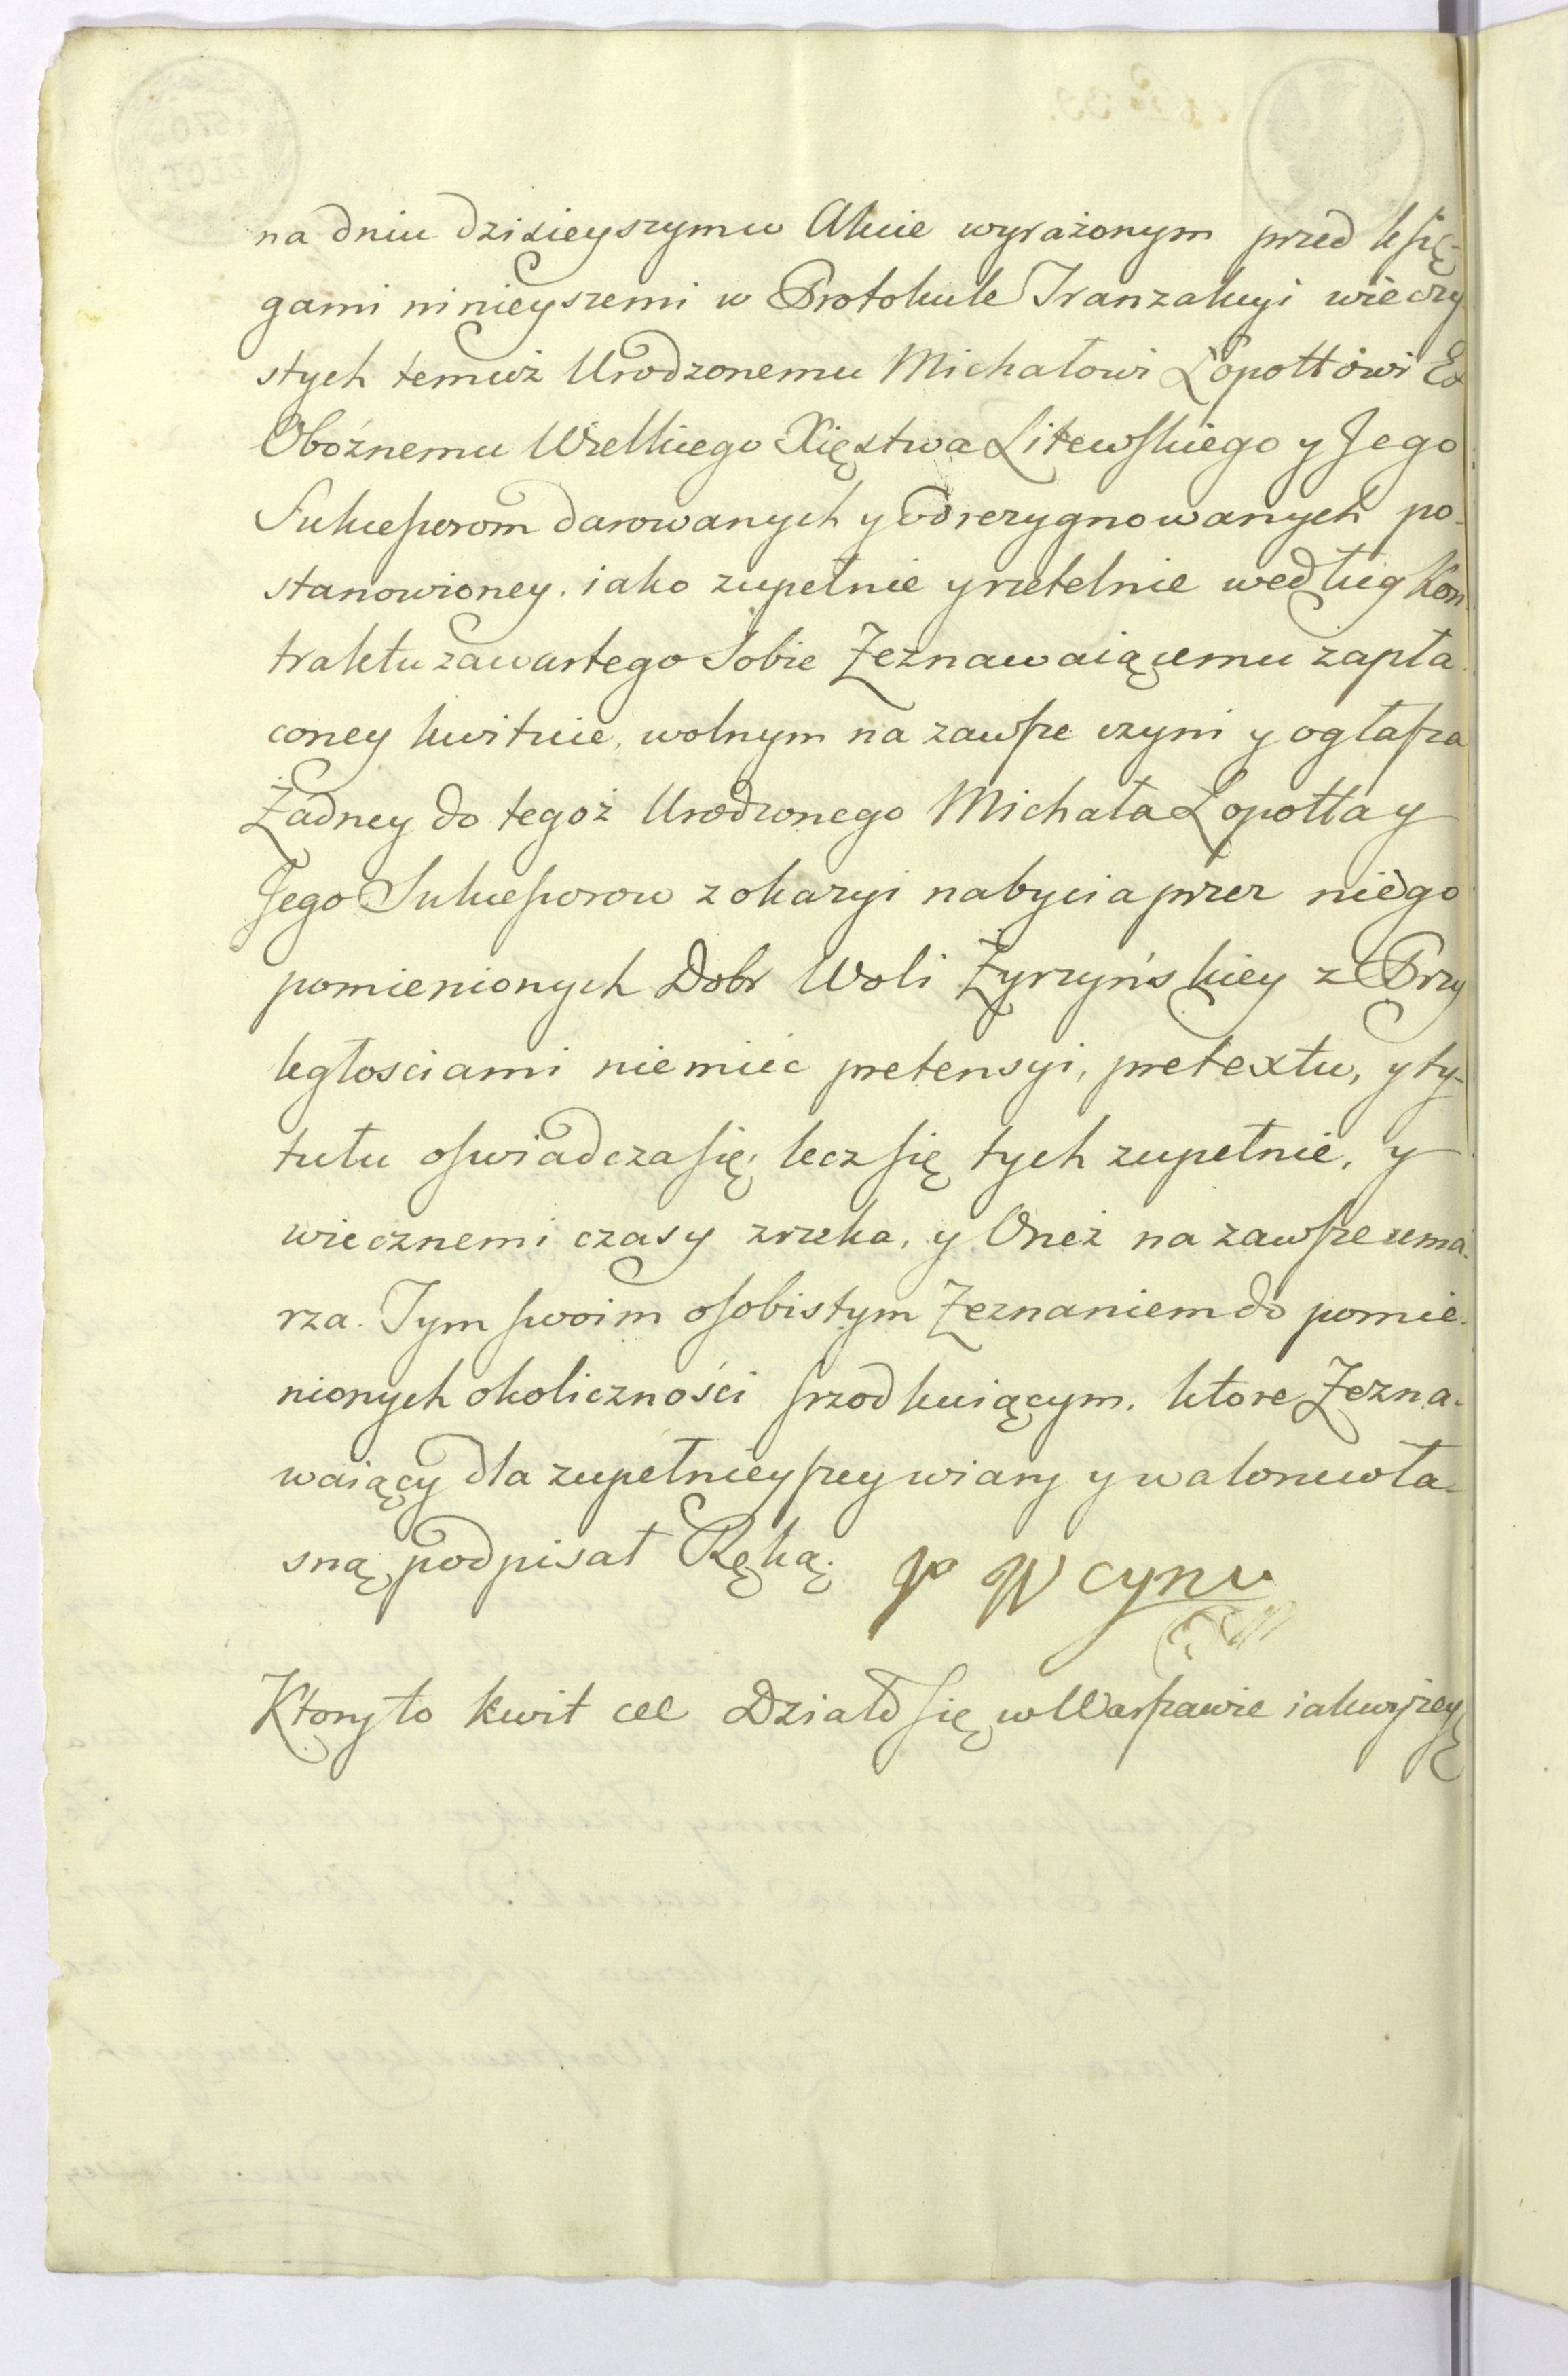 na dniu dzisieyszym w Akcie wyrażonym przed Xsię-
gami ninieyszemi w Protokule Tranzakcyi wieczy
stych temuż Urodzonemu Michałowi Łopottowi Ex
Oboźnemu Wielkiego Xięstwa Litewskiego y Jego
Sukcessorom darowanych y odrezygnowanych po-
stanowioney. iako zupełnie y rzetelnie według Kon
traktu zawartego Sobie Zeznawaiącemu zapła-
coney kwituie, wolnym na zawsze czyni y ogłasza
Żadney do tegoż Urodzonego Michała Łopotta y
Jego Sukcessorow z okazyi nabycia przez niego
pomienionych Dobr Woli Żyrzyńskiey z Przy
ległosciami niemiec pretensyi, pretextu, y ty-
tułu oswiadcza się; lecz się tych zupełnie, y
wiecznemi czasy zrzeka, y Oneż na zawsze uma-
rza. Tym swoim osobistym Zeznaniem do pomie-
nionych okoliczności srzodkuiącym. ktore Zezna-
waiący dla zupełnieyszey wiary y waloru wła-
sną podpisał Ręką.
Ktory to kwit cc Działo się w Warszawie iak wyżey